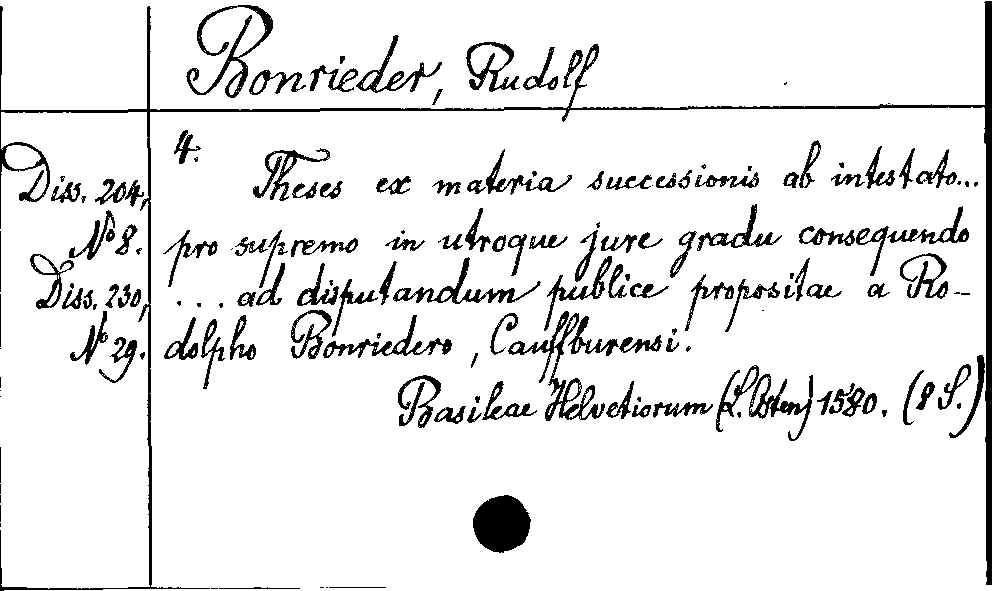 Bonrieder, Rudolf
4.
Diss. 204, Theses ex materia successionis ab intestato...
No 8. pro supremo in utroque jure gradu consequendo
Diss. 230, ... ad disputandum publice propositae a Ro-
No 29. dolpho Bonriedero, Cauffburensi.
Basileae Helvetiorum (L. Osten) 1580. (8 S.)